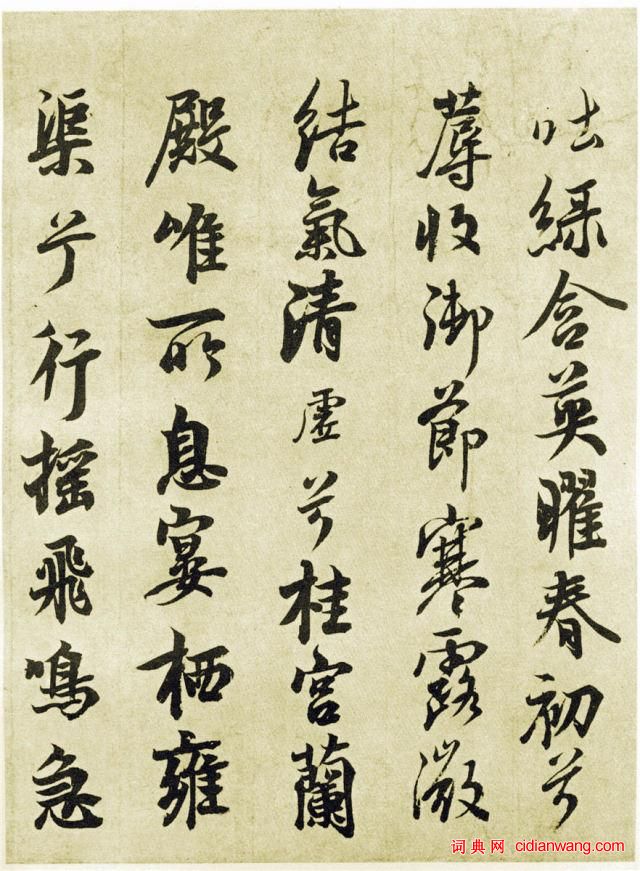 吐綠含英曜春初兮
蓐收御節寒露微
結氣清虛兮桂宮蘭
殿唯所息宴栖雍
渠兮行搖飛鳴急
词典网 cidianwang.com